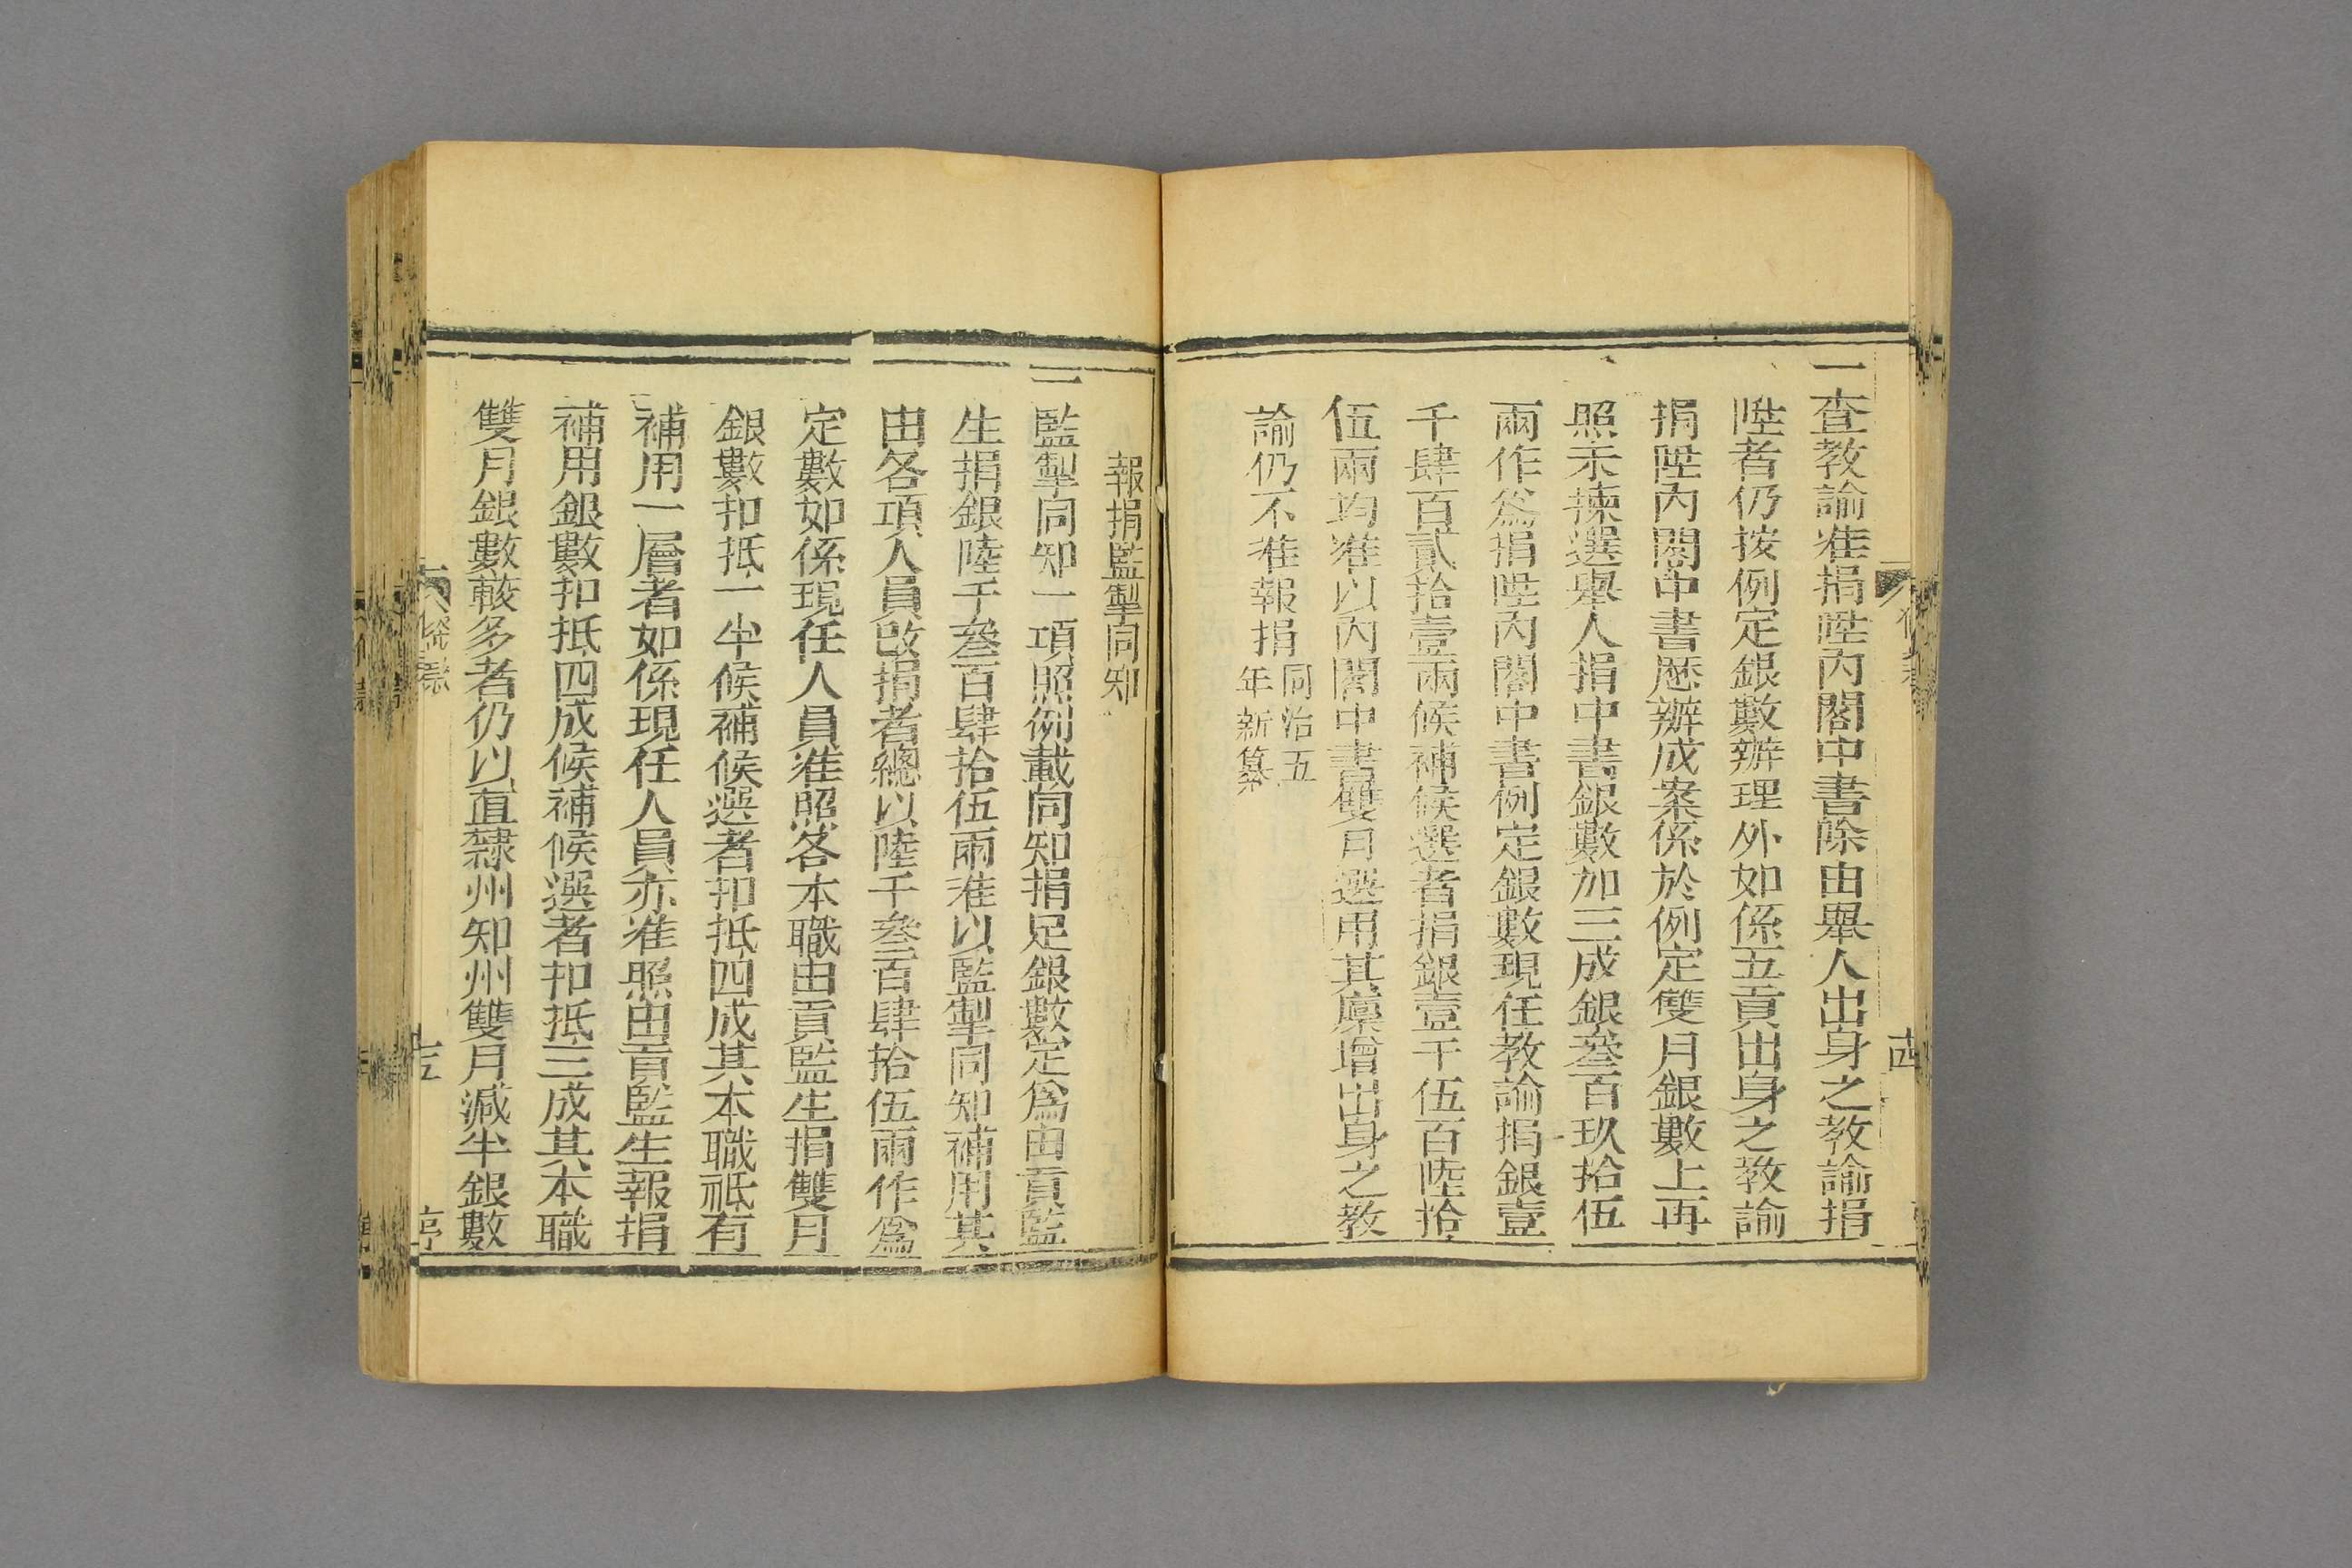 一查教諭准捐陞內閣中書除由舉人出身之教諭捐
陞者仍按例定銀數辦理外如係五貢出身之教諭
捐陞內閣中書歷辦成案係於例定雙月銀數上再
照未揀選舉人捐中書銀數加三成銀叄百玖拾伍
兩作爲捐陞內閣中書例定銀數現任教諭捐銀壹
千肆百貳拾壹兩候補候選者捐銀壹千伍百陸拾
伍兩均准以內閣中書雙月選用其廩增出身之教
諭仍不准報捐
同治五
年新纂
報捐監掣同知
一監掣同知一項照例載同知捐足銀數定爲由貢監
生捐銀陸千叄百肆拾伍兩准以監掣同知補用其
由各項人員改捐者總以陸千叄百肆拾伍兩作爲
定數如係現任人員准照各本職由貢監生捐雙月
銀數扣抵一半候補候選者扣抵四成其本職祗有
補用一層者如係現任人員亦准照由貢監生報捐
補用銀數扣抵四成候補候選者扣抵三成其本職
雙月銀數較多者仍以直隸州知州雙月減半銀數